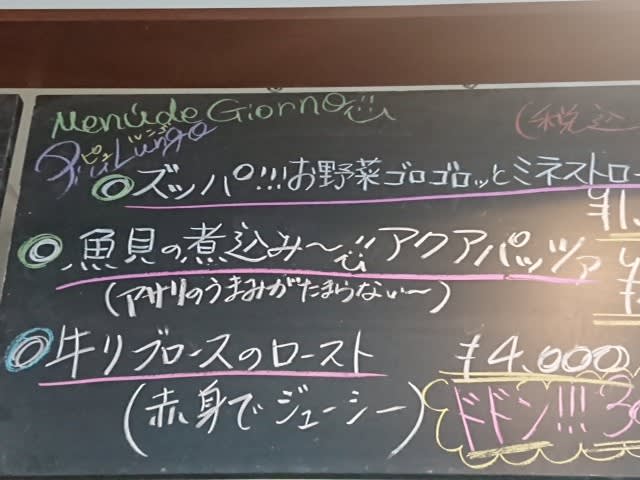 Menú de Giorno
(税込
Più Lungo
ピュ ルンゴ
◎ズッパ!!!お野菜ゴロゴロッとミネストロー
¥1,
◎魚貝の煮込み〜アクアパッツァ
(アサリのうまみがたまらない〜)
◎牛リブロースのロースト ¥4,000
(赤身でジューシー) ドドン!!!30